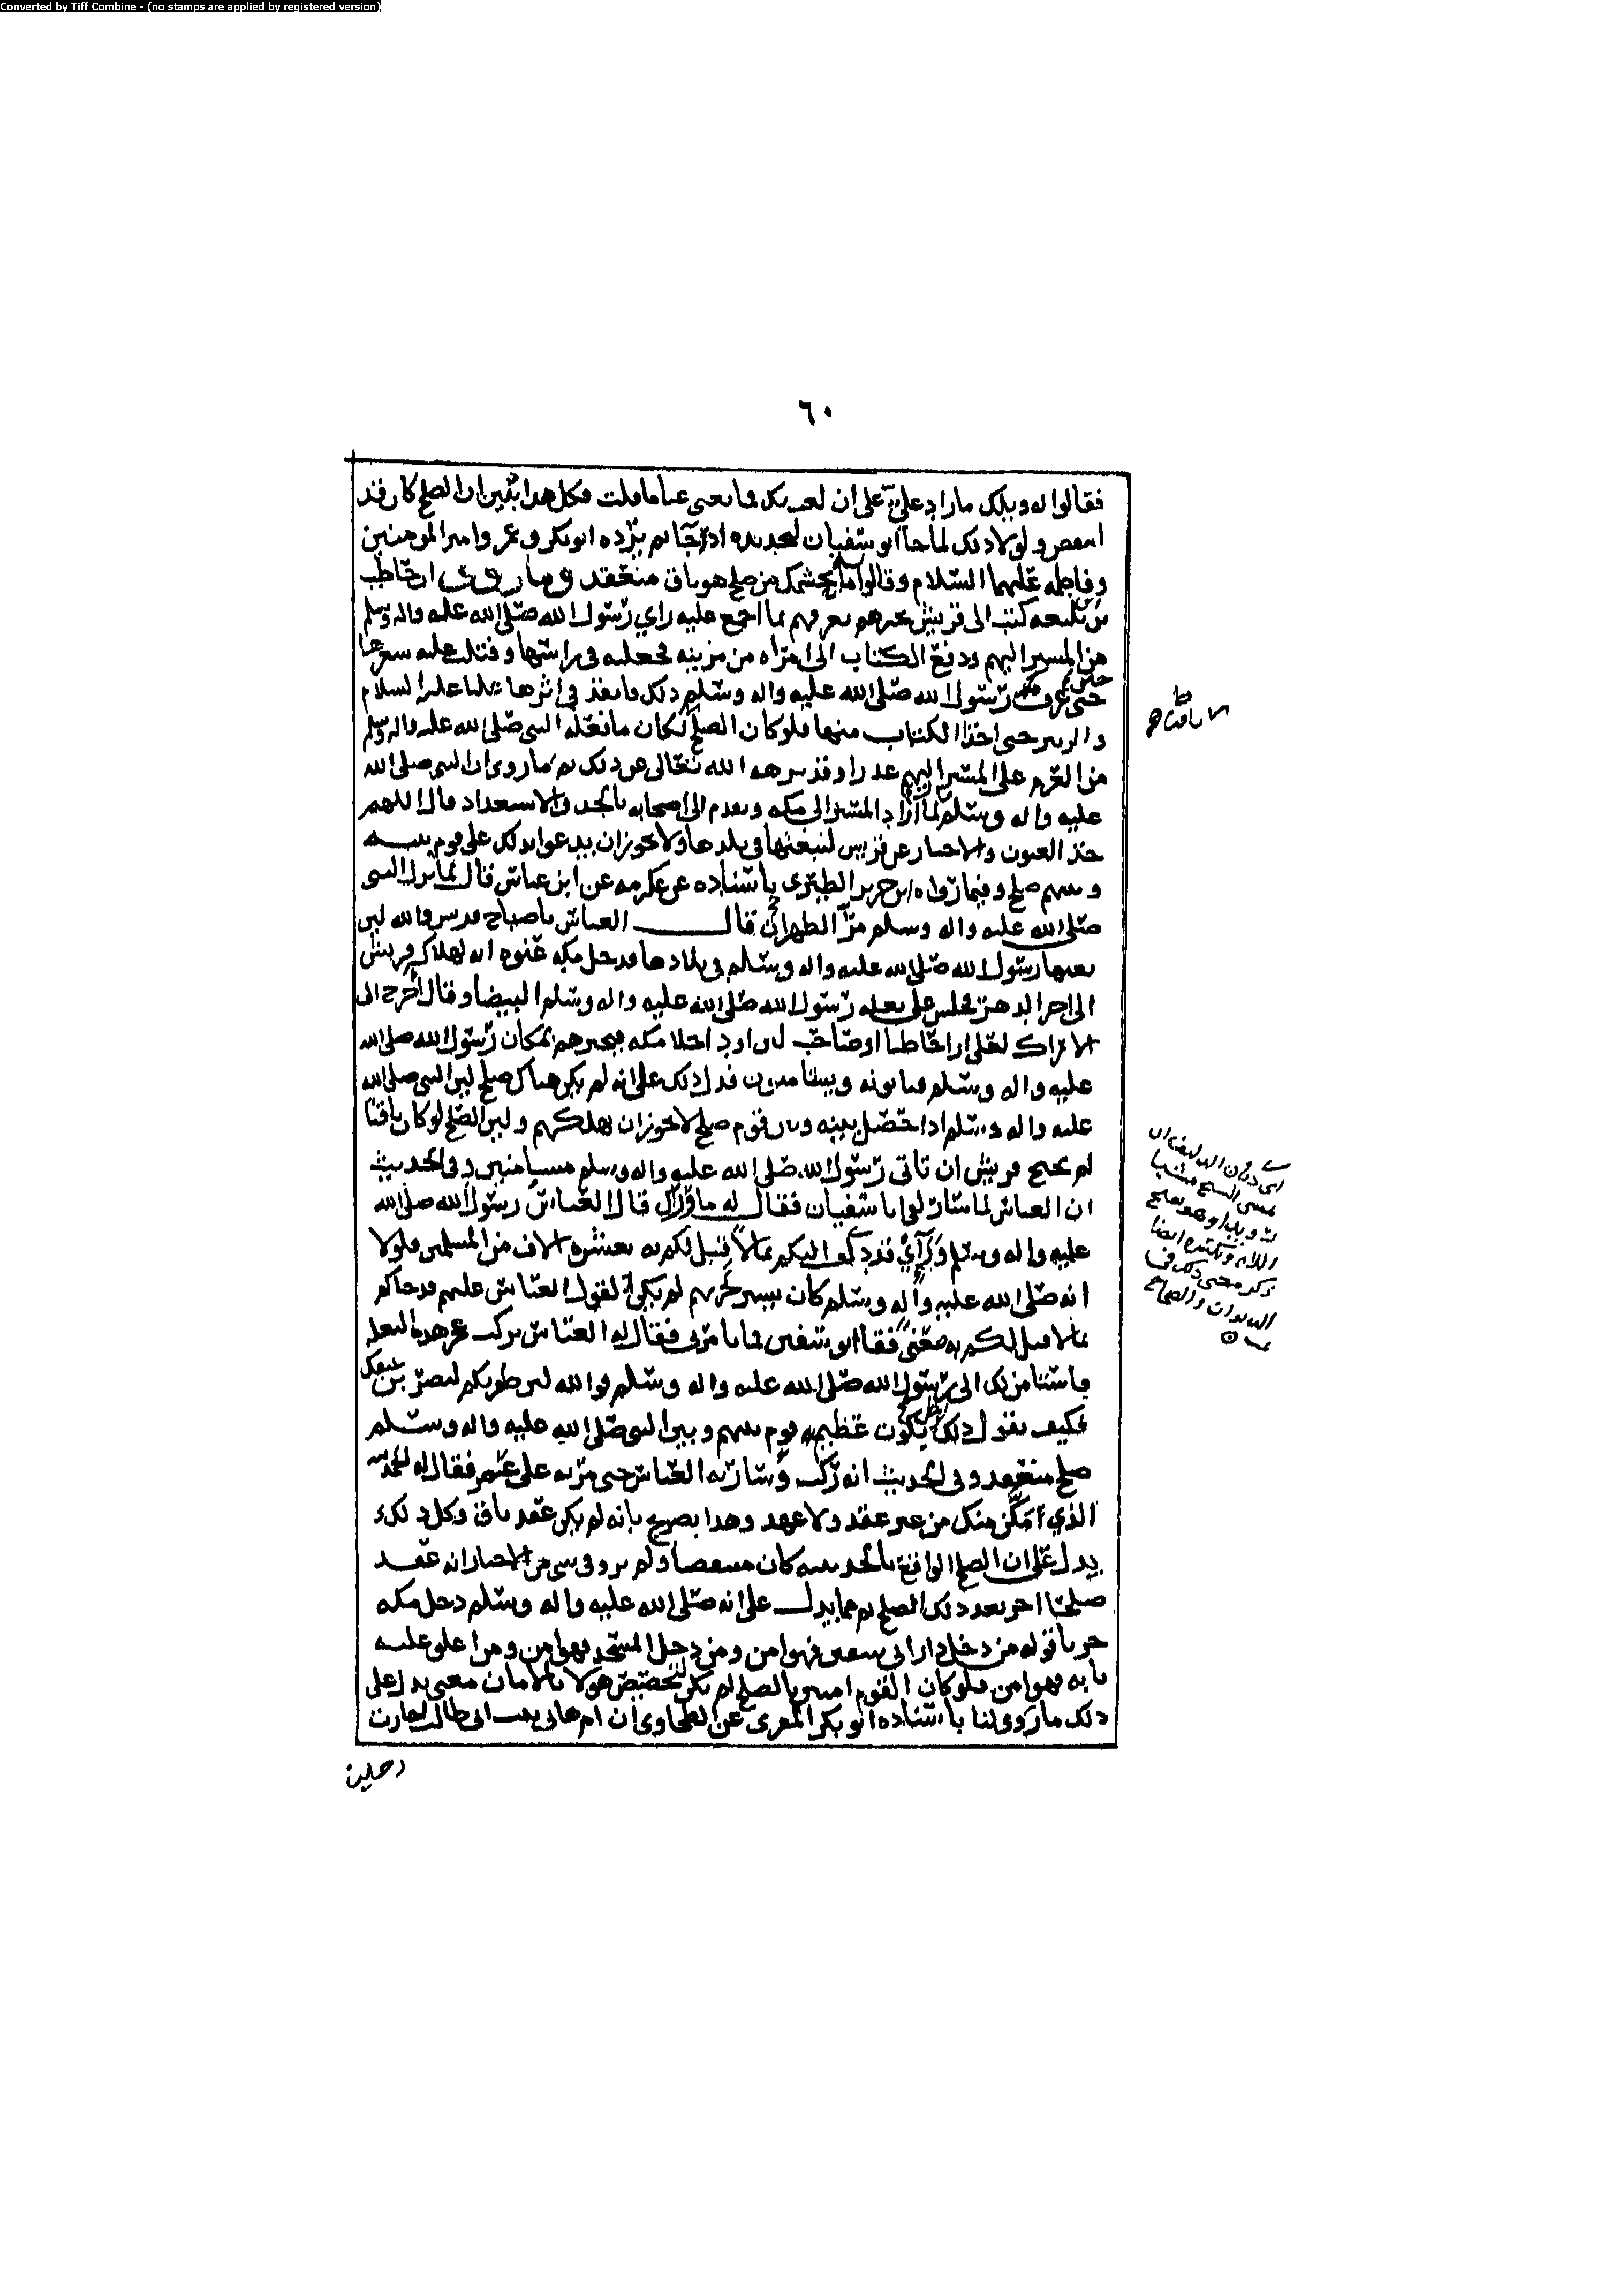 Converted by Tiff Combine - (no stamps are applied by registered version)
٦٠
فقالوا له ويلك ما زاد علي على ان لعب بك فما يغني عنا ما قلت فكل هذا يبين ان الصلح كان قد
انتقض ولولا ذلك لما جا ابو سفيان لتجديده اذا جا ثم يرده ابو بكر وعمر وامير المومنين
وفاطمة عليهما السلام وقالوا ما تجشمك من صلح هو باق منعقد وما روي ان حاطب
بن بلتعه كتب الى قريش يخبرهم يعرفهم بما اجمع عليه راي رسول الله صلى الله عليه واله وسلم
من المسير اليهم ودفع الكتاب الى امراه من مزينه فجعلته في راسها وفتلت عليه شعرها
حتى عرف رسول الله صلى الله عليه واله وسلم ذلك فانفذ في اثرها عليا عليه السلام
والزبير حتى اخذا الكتاب منها فلو كان الصلح لكان ما فعله النبي صلى الله عليه واله وسلم
من العزم على المسير اليهم غدرا وقد نزهه الله تعالى عن ذلك ثم ما روي ان النبي صلى الله
عليه واله وسلم لما اراد المسير الى مكه وتقدم الى اصحابه بالجد والاستعداد قال اللهم
خذ العيون والاخبار عن قريش لنبغتها في بلدها ولا يجوز ان يدعو بذلك على قوم بينه
وبينهم صلح وفيما رواه ابن جرير الطبري باسناده عن عكرمه عن ابن عباس قال لما نزل النبي
صلى الله عليه واله وسلم مر الظهران قال العباس يا صباح قريش والله لئن
بغتها رسول الله صلى الله عليه واله وسلم في بلادها فدخل مكه عنوه انه لهلاك قريش
الى اخر الدهر فجلس على بغله رسول الله صلى الله عليه واله وسلم البيضا وقال اخرج الى
الاراك لعلي ارا حطابا او صاحب لبن او داخلا مكه فيخبرهم بمكان رسول الله صلى الله
عليه واله وسلم فياتونه ويستامنون فدل ذلك على انه لم يكن هناك صلح لان النبي صلى الله
عليه واله وسلم اذا حصل بينه وبين قوم صلح لا يجوز ان يهلكهم ولان الصلح لو كان باقيا
لم يحتج قريش ان تاتي رسول الله صلى الله عليه واله وسلم مستامنين وفي الحديث
ان العباس لما سار لقي ابا سفيان فقال له ما وراك قال العباس رسول الله صلى الله
عليه واله وسلم وراي قد دلف اليكم بما لا قبل لكم به بعشره الاف من المسلمين فلولا
انه صلى الله عليه واله وسلم كان يسير لحربهم لم يكن لقول العباس عليهم قد جاكم
بما لا قبل لكم به معنى فقال ابو سفين فما تامرني فقال له العباس تركب عجز هذه البغله
فاستامن لك الى رسول الله صلى الله عليه واله وسلم فوالله لئن ظفر بكم ليضربن عنقك
فكيف يقول ذلك عظيم قوم بينهم وبين النبي صلى الله عليه واله وسلم
صلح منعقد وفي الحديث انه ركب وسار به العباس حتى مر به على عمر فقال له الحمد لله
الذي امكن منك من غير عقد ولا عهد وهذا تصريح بانه لم يكن عقد باق وكل ذلك
يدل على ان الصلح الواقع بالحديبيه كان منتقضا ولم يرو في شي من الاخبار انه عقد
صلحا اخر بعد ذلك الصلح ثم مما يدل على انه صلى الله عليه واله وسلم دخل مكه
حربا قوله من دخل دار ابي سفين فهو امن ومن دخل المسجد فهو امن ومن اغلق عليه
بابه فهو امن فلو كان القوم امنين بالصلح لم يكن لتخصيص هولا بالامان معنى يدل على
ذلك ما روى لنا باسناده ابو بكر المقري عن الطحاوي ان ام هاني بنت ابي طالب اجارت
رجلين